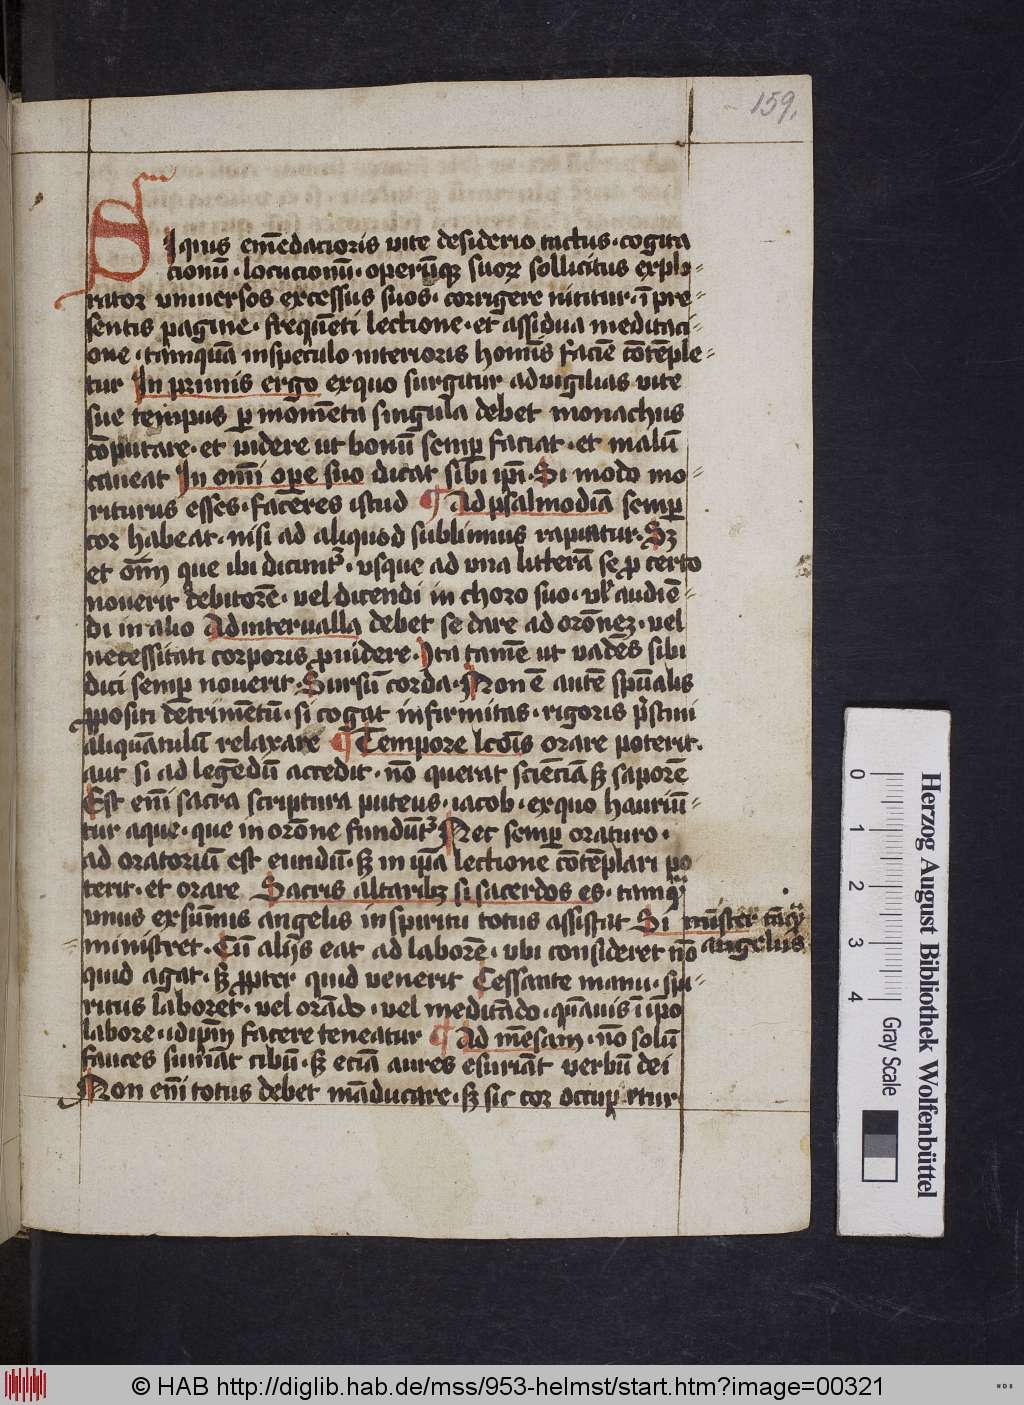 159.
SIquis em̄edacioris vite desiderio tactus · cogita
cionū · locucionū · operūqꝫ suoꝝ sollicitus explo⸗
rator vniuersos excessus suos · corrigere nititur · ī pre⸗
sentis pagine · frequēti lectione · et assidua meditaci⸗
one · tamquā inspeculo interioris homīs faciē cōtēple⸗
tur In primis ergo exquo surgitur advigilias vite
sue tempus ꝑ momēta singula debet monachus
cōputare · et videre ut bonū semꝑ faciat · et malū
caueat In omī oꝑe suo dicat sibī ip̄i · Si modo mo⸗
riturus esses · facēres istud ¶ Ad psalmodiā semꝑ
cor habeat · nisi ad aliquod sublimius rapiatur · Sꝫ
et om̄i que ibi dicunt᷑ · vsque ad vna litterā se ꝓ certo
nouerit debitorē · vel dicendi in choro suo · vl̓ audiē⸗
di in alio Ad interualla debet se dare ad orōnez · vel
necessitati corporis ꝓuidere · Ita tamē ut vadēs sibi
dici semꝑ nouerit · Sursū corda · Non ē autē sp̄ualis
ꝓpositi detrimētū · si cogat infirmitas · rigoris p̄stini
aliquātulū relaxare ¶ Tempore lcōis orare poterit ·
aut si ad legēdū accedit · nō querat sciēciā sꝫ saporē
Est em̄i sacra scriptura puteus · iacob · exquo hauriū⸗
tur aque · que in orōne fundūt᷑ Nec semꝑ oraturo ·
ad oratoriū est eundū · sꝫ in ip̄a lectione cōtēplari po
terit · et orare Sacris altaribꝫ si sacerdos es · tamqᷓ
vnus exsūmis angelis in spiritu totus assistat Si mīster tāqᷓ
ministret · Cū alijs eat ad laborē · vbi consideret nō angelus
quid agat · sꝫ ꝓpter quid venerit Cessante manu · spi⸗
ritus laboret · vel orādo · vel meditādo · quāuis ī ip̄o
labore · idip̄m facere teneatur ¶ Ad mēsam · nō solū
fauces sumāt cibū · sꝫ eciā aures esuriāt verbū dei
Non em̄i totus debet māducare · sꝫ sic cor
Herzog August Bibliothek Wolfenbüttel
0 1 2 3 4 Gray Scale
© HAB http://diglib.hab.de/mss/953-helmst/start.htm?image=00321